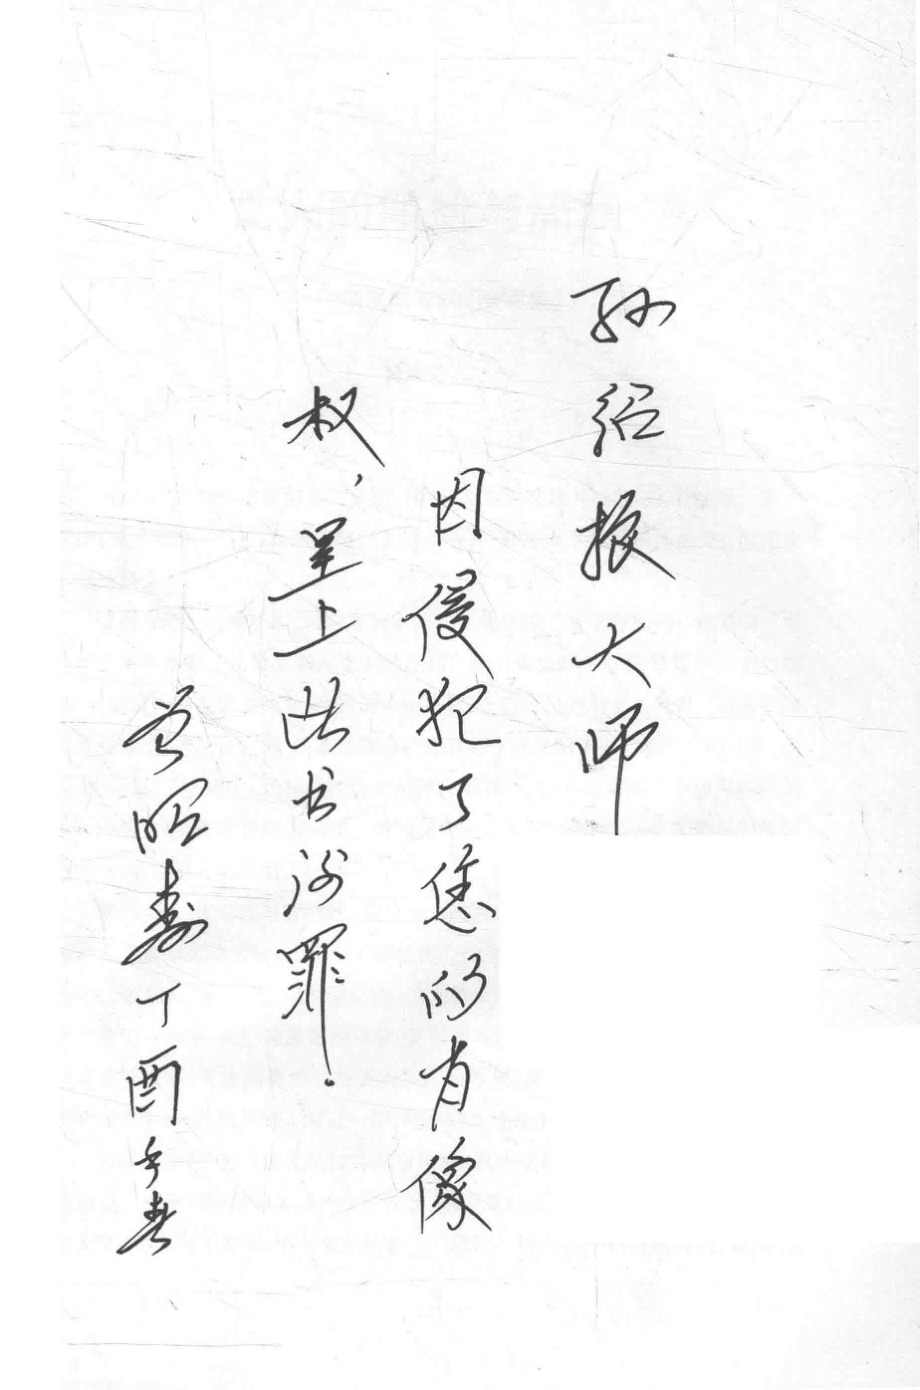 孙绍振大师
因侵犯了您的肖像
权，呈上此书谢罪.
曾昭寿丁酉年春